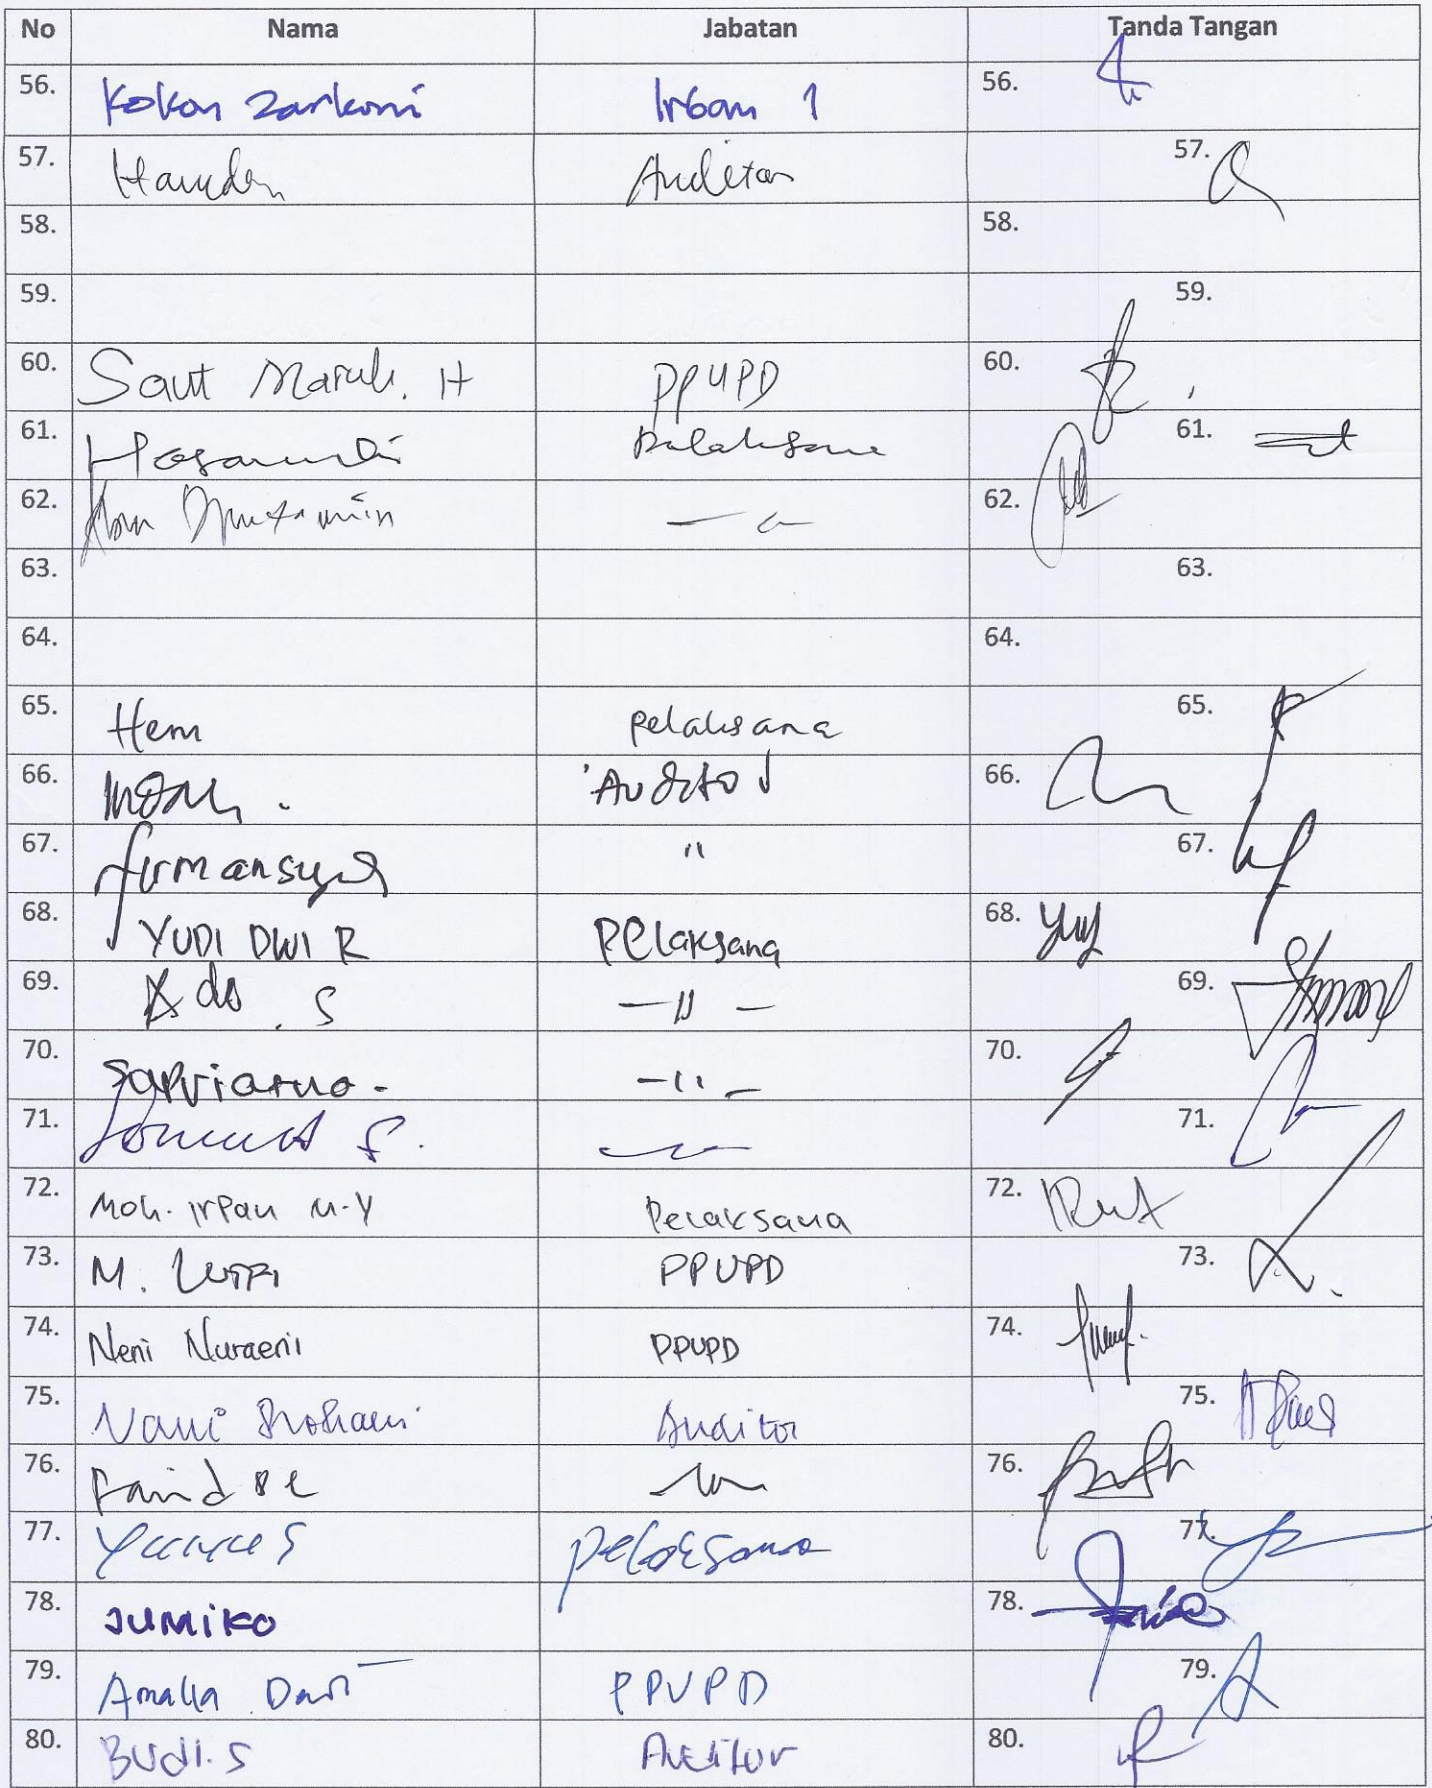 No Nama Jabatan Tanda Tangan
56. Kokon Zarkoni Irban 1 56.
57. Hamdan Auditor 57.
58. 58.
59. 59.
60. Saut Maruli. H PPUPD 60.
61. Pelaksana 61.
62. 62.
63. 63.
64. 64.
65. Heru pelaksana 65.
66. Indah. Auditor 66.
67. firmansyah " 67.
68. YUDI DWI R Pelaksana 68.
69. Ado. S —"— 69.
70. -"- 70.
71. S. 71.
72. Moh. Irpan M.Y Pelaksana 72.
73. M. LUTFI PPUPD 73.
74. Neni Nuraeni PPUPD 74.
75. Nani Rohani Auditor 75.
76. Farid 76.
77. Yunus pelaksana 77.
78. JUMiKO 78.
79. Amalia Dewi PPUPD 79.
80. BUdi.S Auditor 80.